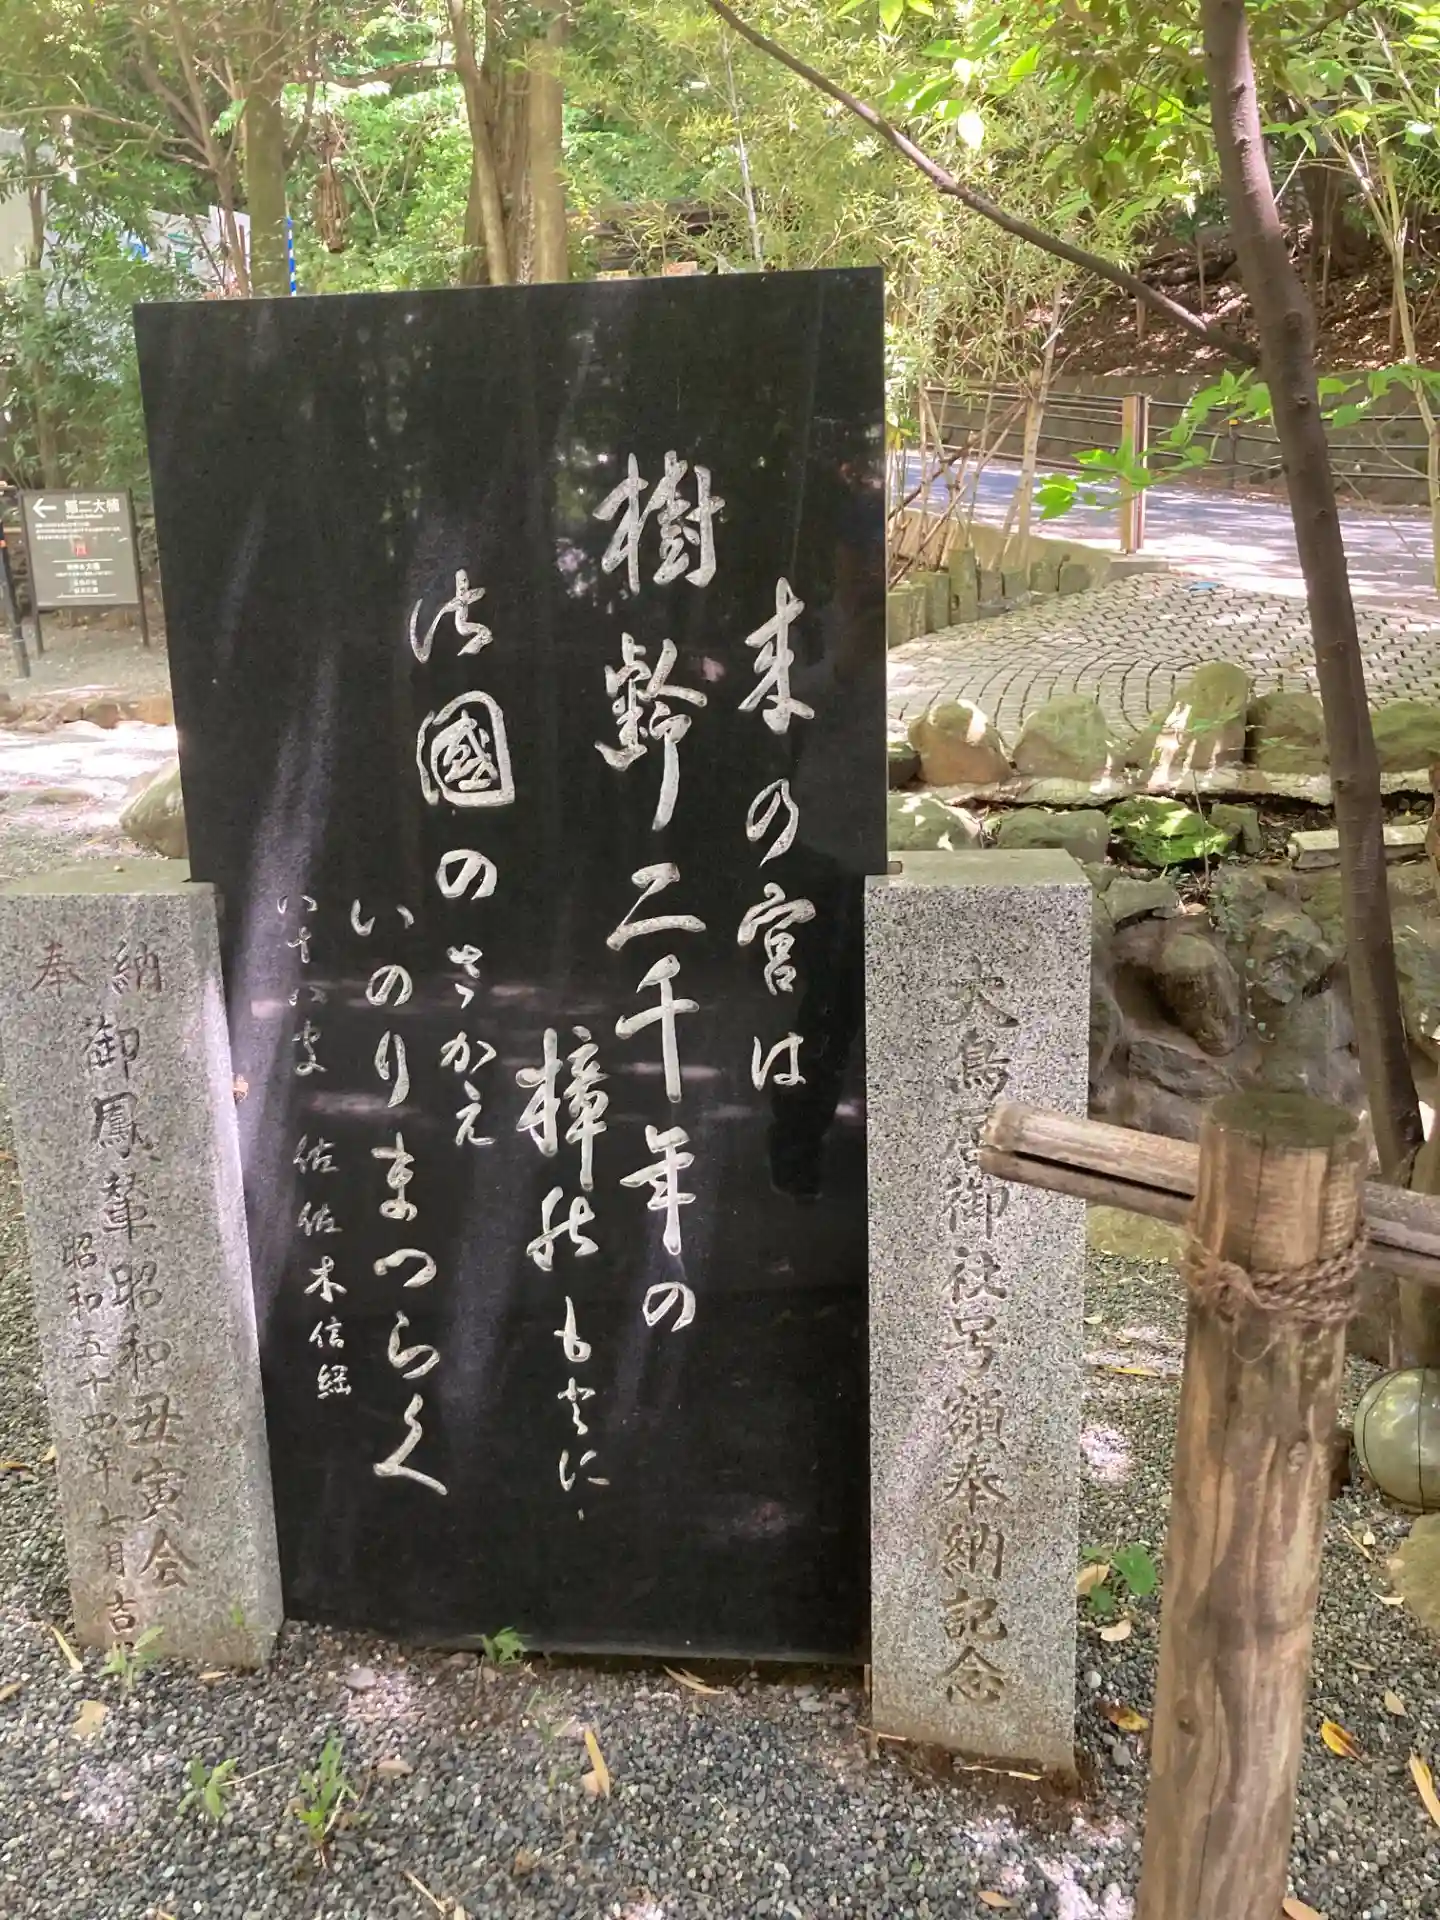 来の宮は
樹齢二千年の
樟能もとに
御國のさかえ
いのりまつらく
佐佐木信綱
大鳥居御社号額奉納記念
奉納
御鳳輦昭和丑寅会
昭和五十四年七月吉
← 第二大楠